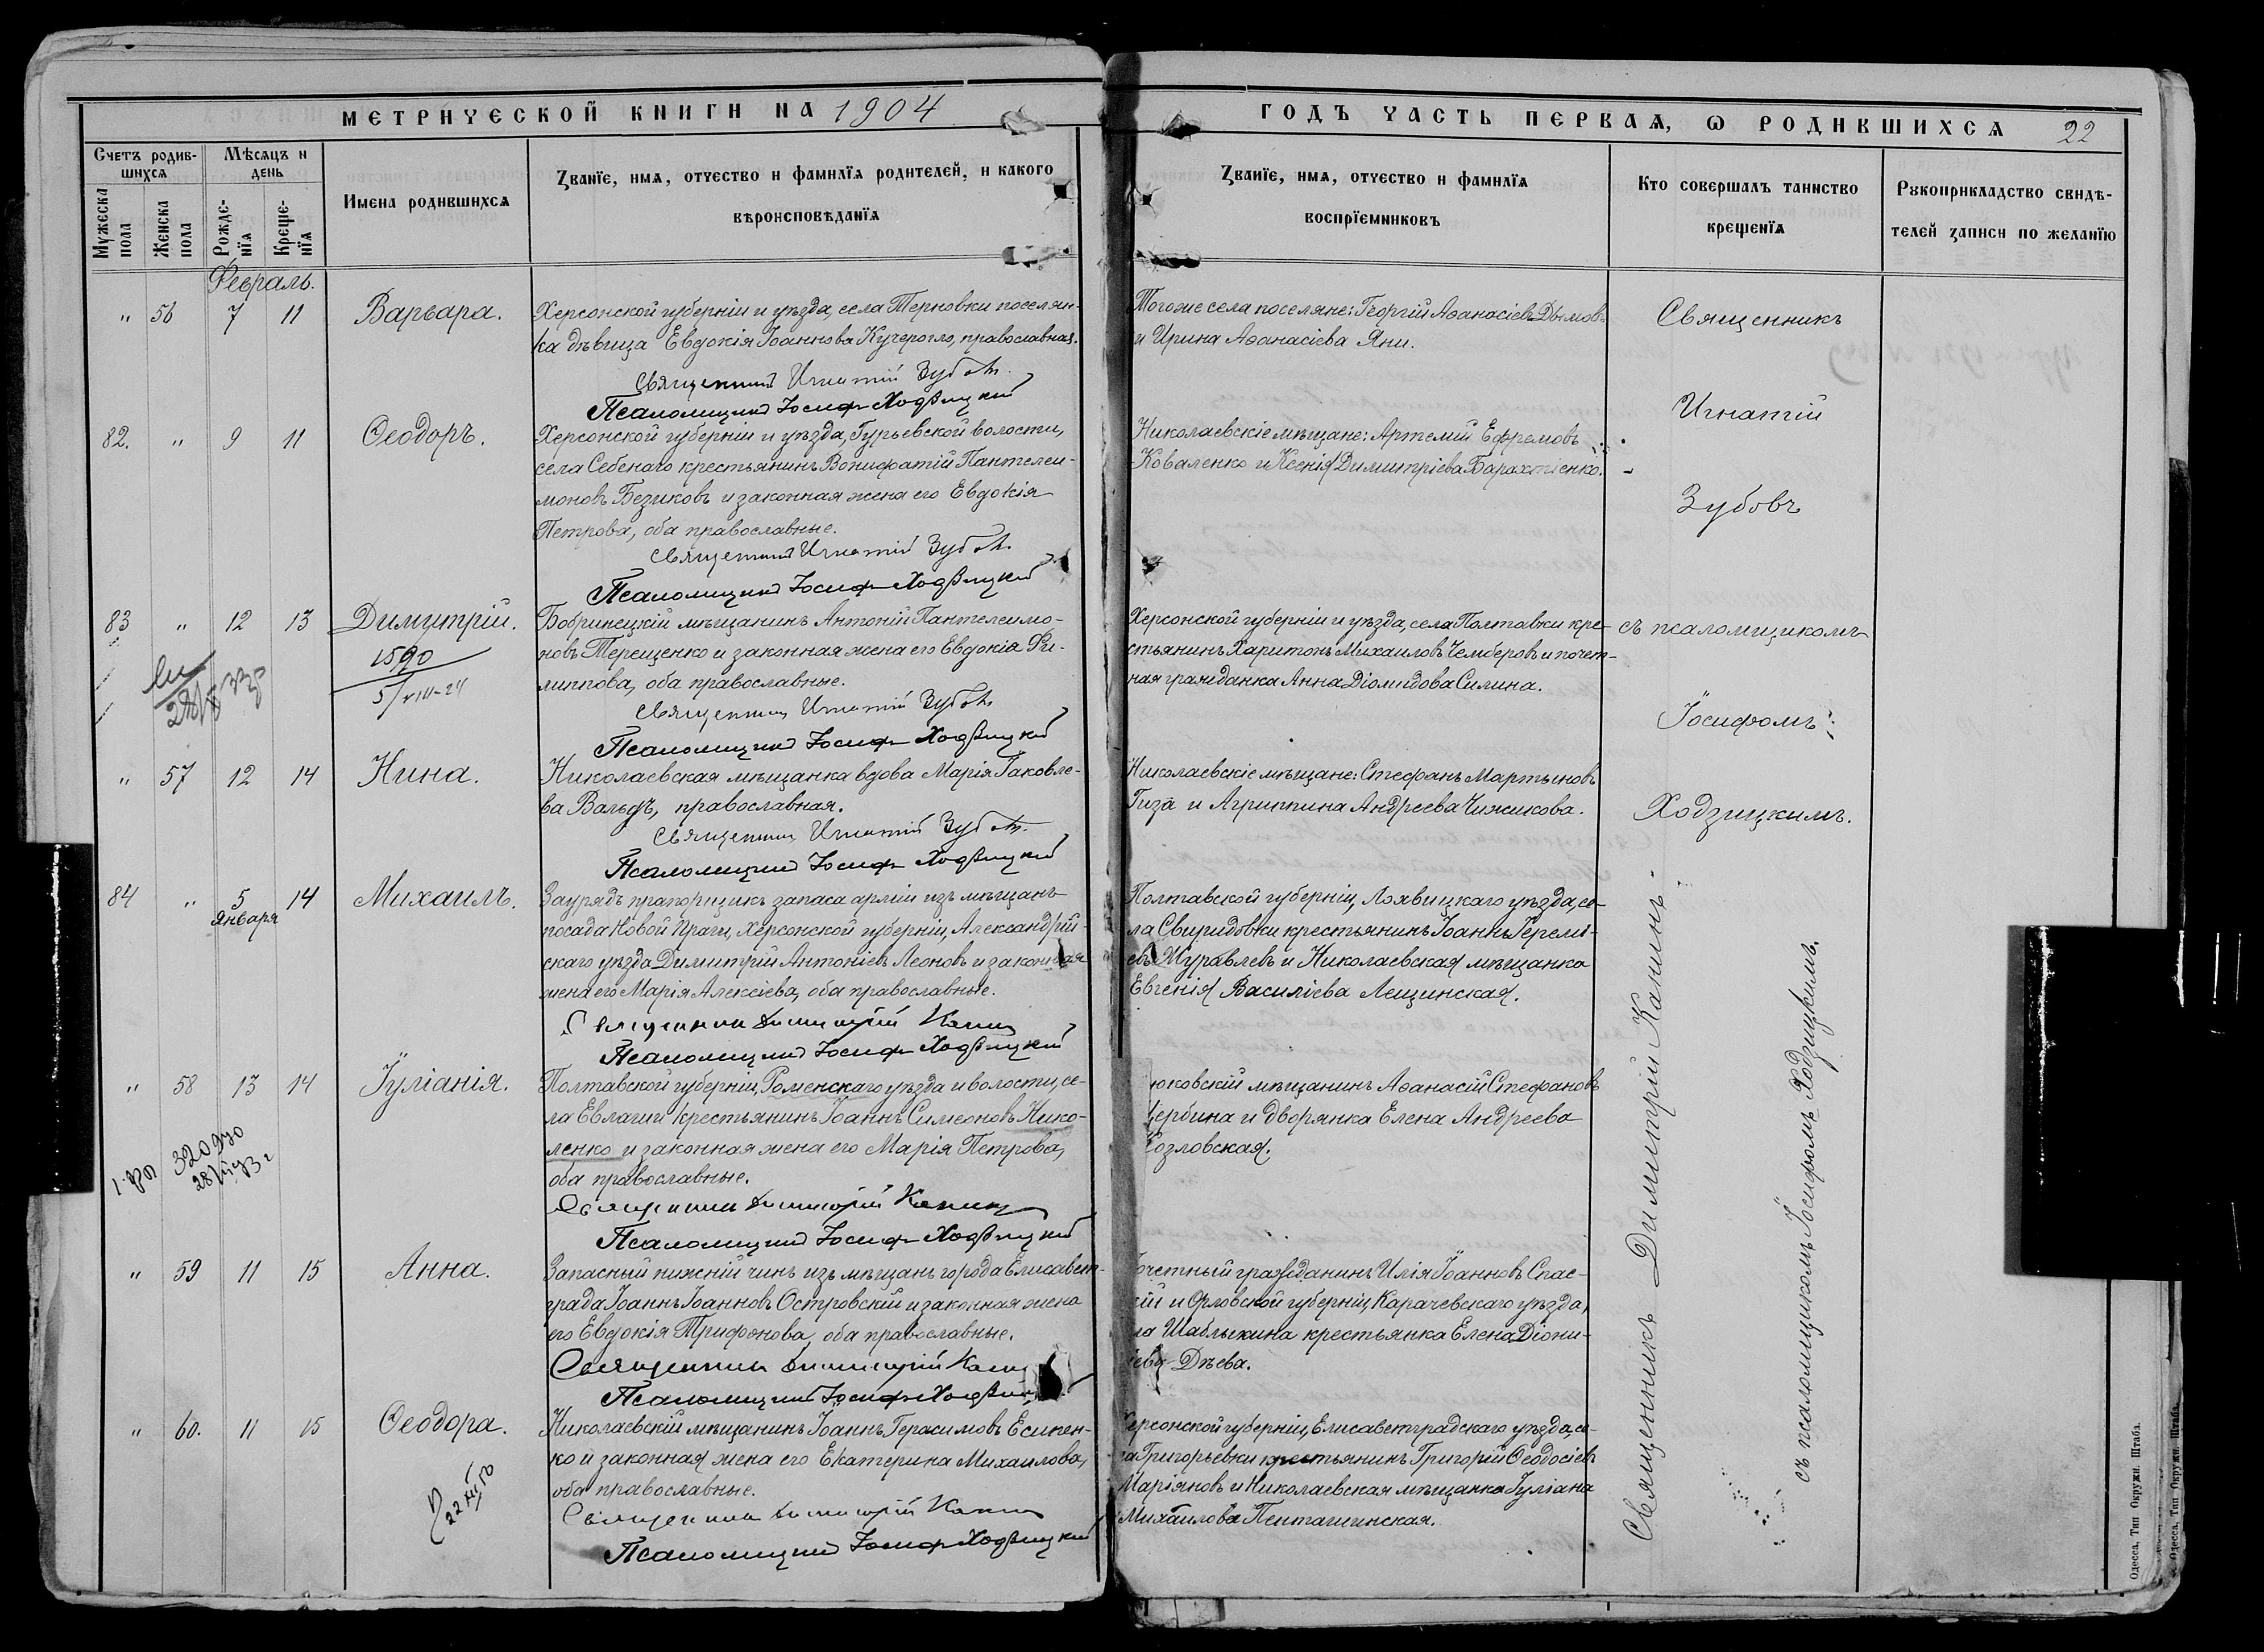 МЕТРИЧЕСКОЙ КНИГИ НА 1904
Счетъ родив-
шихся
Мѣсяцъ и
день
Имена родившихся
Званїе, имя, отчество и фамилїя родителей, и какого
вѣроисповѣданїя
Мужеска
пола
Женска
пола
Рожде-
нїя
Креще-
нїя
Февраль.
" 56 7 11 Варвара.
Херсонской губерніи и уѣзда, села Терновки поселян-
ка дѣвица Евдокія Іоаннова Кучерогло, православная.
Священникъ Игнатій Зубовъ.
Псаломщикъ Іосифъ Ходзицкій
82. " 9 11 Ѳеодоръ.
Херсонской губерніи и уѣзда, Гурьевской волости,
села Себенаго крестьянинъ Вонифатій Пантелеи-
моновъ Безиковъ и законная жена его Евдокія
Петрова, оба православные.
Священникъ Игнатій Зубовъ.
Псаломщикъ Іосифъ Ходзицкій
83 " 12 13 Димитрій.
1590
5/VIII-24
Бобринецкій мѣщанинъ Антоній Пантелеимо-
новъ Терещенко и законная жена его Евдокія Фи-
липпова, оба православные.
Священникъ Игнатій Зубовъ
Псаломщикъ Іосифъ Ходзицкій
" 57 12 14 Нина.
Николаевская мѣщанка вдова Марія Іаковле-
ва Вальфъ, православная.
Священникъ Игнатій Зубовъ.
Псаломщикъ Іосифъ Ходзицкій
84 " 5 января 14 Михаилъ.
Заурядъ прапорщикъ запаса арміи изъ мѣщанъ
посада Новой Праги, Херсонской губерніи, Александрій-
скаго уѣзда Димитрій Антоніевъ Леоновъ и законная
жена его Марія Алексіева, оба православные.
Священникъ Димитрій Канинъ
Псаломщикъ Іосифъ Ходзицкій
" 58 13 14 Іуліанія.
Полтавской губерніи, Роменскаго уѣзда и волости, се-
ла Евлаши крестьянинъ Іоаннъ Симеоновъ Нико-
ленко и законная жена его Марія Петрова,
оба православные.
Священникъ Димитрій Канинъ
Псаломщикъ Іосифъ Ходзицкій
" 59 11 15 Анна.
Запасный нижній чинъ изъ мѣщанъ города Елисавет-
града Іоаннъ Іоанновъ Островскій и законная жена
его Евдокія Трифонова, оба православные.
Священникъ Димитрій Канинъ
Псаломщикъ Іосифъ Ходзицкій
" 60. 11 15 Ѳеодора.
Николаевскій мѣщанинъ Іоаннъ Герасимовъ Есипен-
ко и законная жена его Екатерина Михаилова,
оба православные.
Священникъ Димитрій Канинъ
Псаломщикъ Іосифъ Ходзицкій
ГОДЪ ЧАСТЬ ПЕРВАЯ, Ѡ РОДИВШИХСЯ 22
Званїе, имя, отчество и фамилїя
воспрїемниковъ
Кто совершалъ таинство
крещенїя
Рукоприкладство свидѣ-
телей записи по желанїю
Того же села поселяне: Георгій Аѳанасіевъ Дымовъ
и Ирина Аѳанасіева Яни.
Николаевскіе мѣщане: Артемій Ефремовъ
Коваленко и Ксенія Димитріева Барахтіенко.
Херсонской губерніи и уѣзда, села Полтавки кре-
стьянинъ Харитонъ Михаиловъ Чемберовъ и почет-
ная гражданка Анна Діомидова Силина.
Николаевскіе мѣщане: Стефанъ Мартыновъ
Гиза и Агриппина Андреева Чижикова.
Полтавской губерніи, Лохвицкаго уѣзда, се-
ла Свиридовки крестьянинъ Іоаннъ Іереми-
евъ Журавлевъ и Николаевская мѣщанка
Евгенія Василіева Лещинская.
юковскій мѣщанинъ Аѳанасій Стефановъ
ербина и дворянка Елена Андреева
Козловская.
очетный гражданинъ Илія Іоанновъ Спас-
кій и Орловской губерніи, Карачевскаго уѣзда,
ла Шаблыкина крестьянка Елена Діони-
сіева Дѣева.
Херсонской губерніи, Елисаветградскаго уѣзда, се-
ла Григорьевки крестьянинъ Григорій Ѳеодосіевъ
Маріяновъ и Николаевская мѣщанка Іуліана
Михаилова Пенташинская.
Священникъ
Игнатій
Зубовъ
съ псаломщикомъ
Іосифомъ
Ходзицкимъ.
Священникъ Димитрій Канинъ
съ псаломщикомъ Іосифомъ Ходзицкимъ.
Одесса, Тип Окружн. Штаба.
Одесса, Тип Окружн. Штаба.